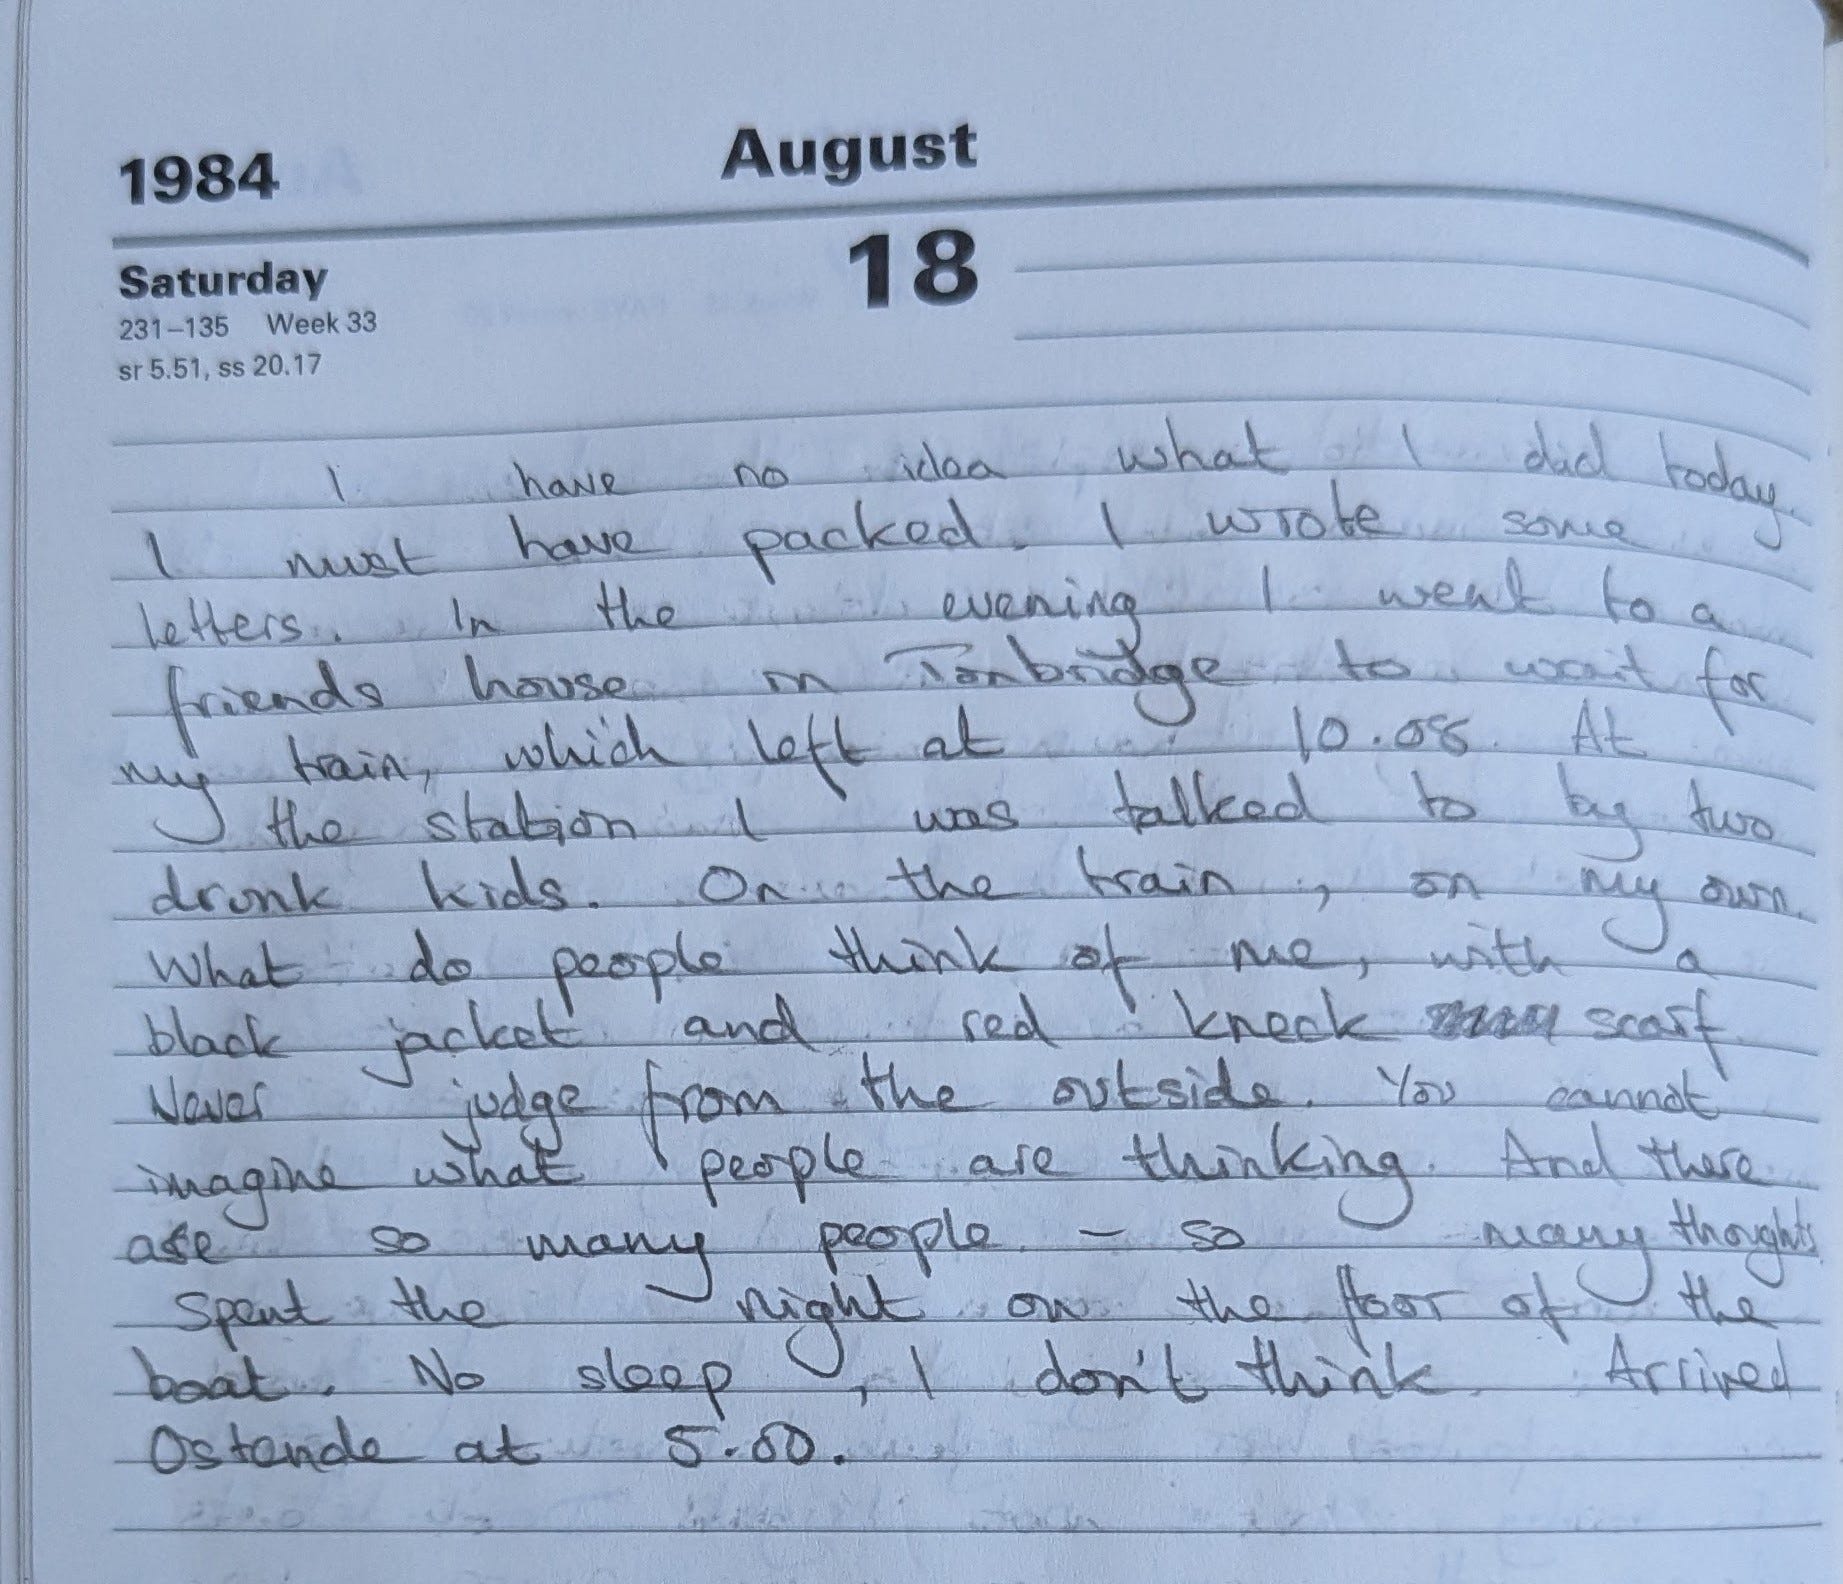 1984 August
Saturday 18
231–135 Week 33
sr 5.51, ss 20.17
I have no idea what I did today.
I must have packed. I wrote some
letters. In the evening I went to a
friends house in Tonbridge to wait for
my train, which left at 10.08. At
the station I was talked to by two
drunk kids. On the train, on my own.
What do people think of me, with a
black jacket and red kneck scarf.
Never judge from the outside. You cannot
imagine what people are thinking. And there
are so many people – so many thoughts
Spent the night on the floor of the
boat. No sleep, I don't think. Arrived
Ostende at 5.00.